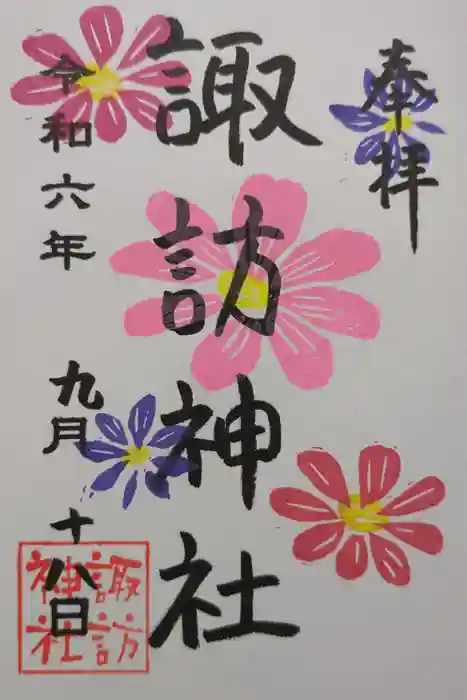 奉拝
諏訪神社
令和六年 九月 十八日
諏訪
神社